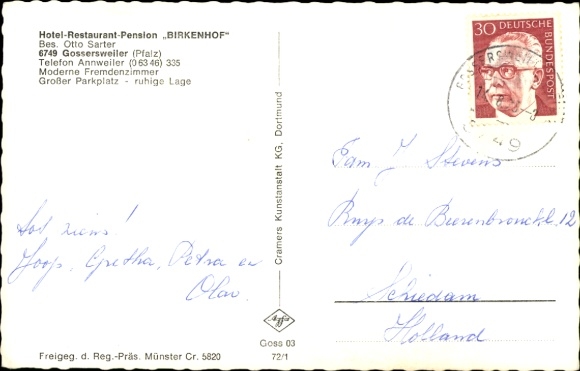 Hotel-Restaurant-Pension „BIRKENHOF"
Bes. Otto Sarter
6749 Gossersweiler (Pfalz)
Telefon Annweiler (0 63 46) 335
Moderne Fremdenzimmer
Großer Parkplatz - ruhige Lage
30 DEUTSCHE BUNDESPOST
Cramers Kunstanstalt KG, Dortmund
Fam J Stevens
Ruys de Beerenbrouckl. 12
Schiedam
Holland
Tot ziens!
Joop, Gretha, Petra en
Olav.
Agfa
Goss 03
72/1
Freigeg. d. Reg.-Präs. Münster Cr. 5820